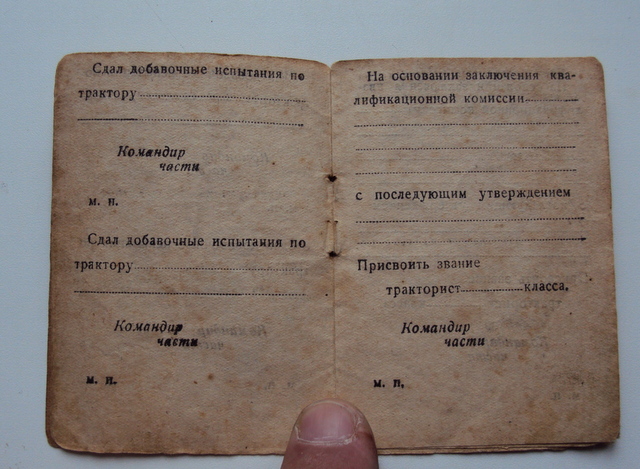 Сдал добавочные испытания по
трактору
Командир
части
м. п.
Сдал добавочные испытания по
трактору
Командир
части
м. п.
На основании заключения ква-
лификационной комиссии
с последующим утверждением
Присвоить звание
тракторист класса.
Командир
части
м. п.